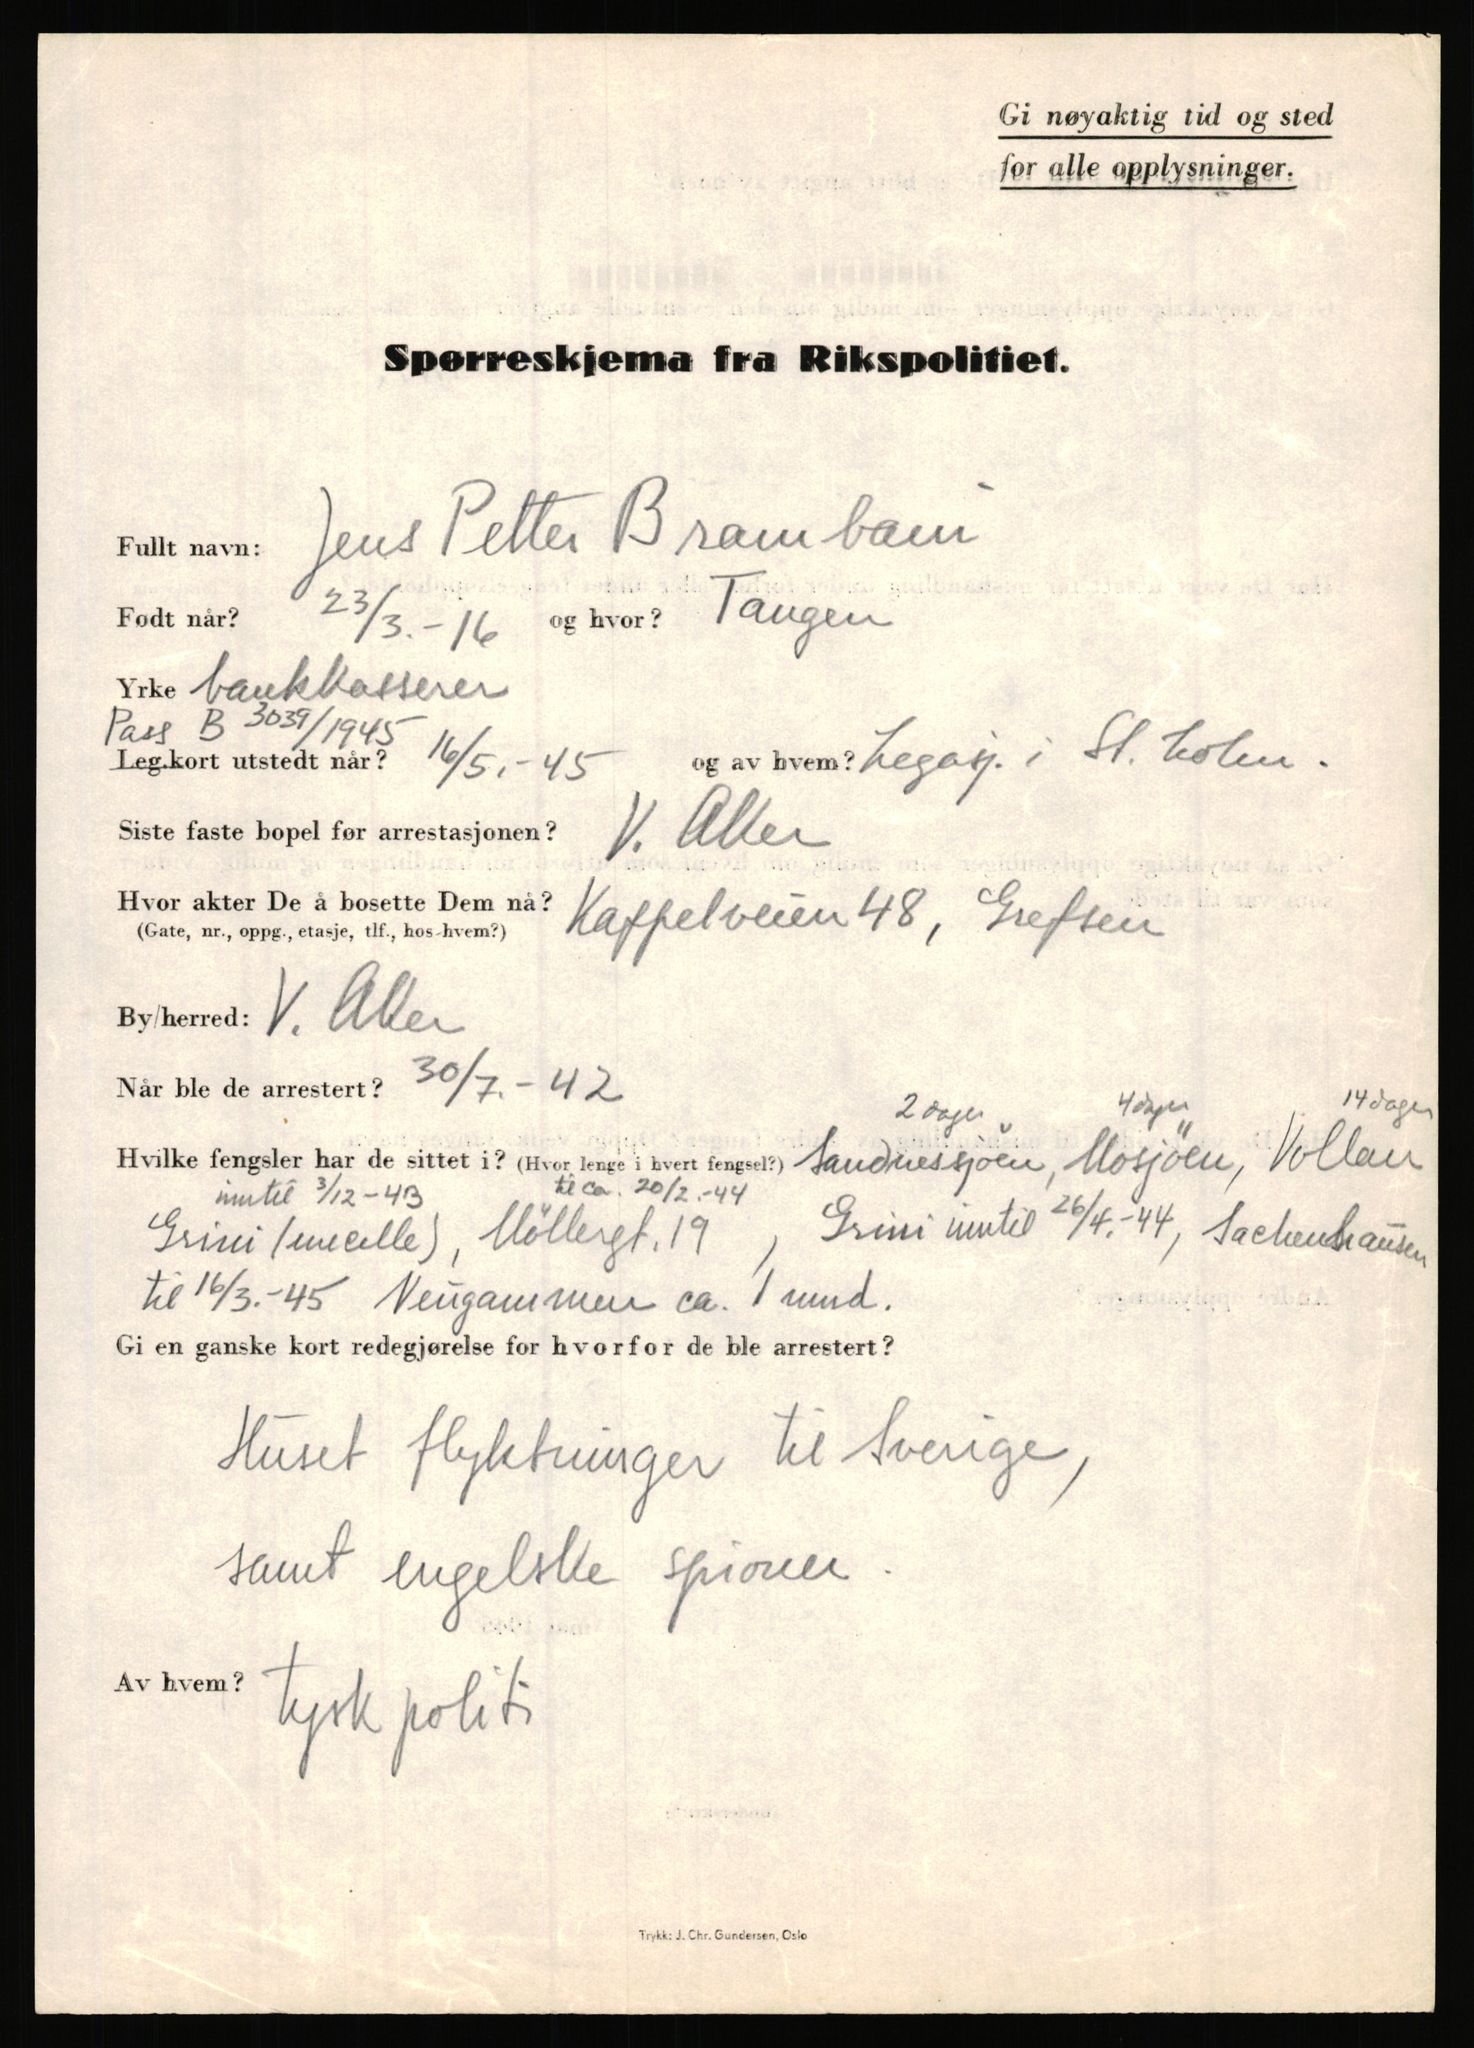 Gi nøyaktig tid og sted
for alle opplysninger.
Spørreskjema fra Rikspolitiet.
Fullt navn: Jens Petter Brambani
Født når? 23/3.-16 og hvor? Tangen
Yrke bankkasserer
Pass B 3039/1945
Leg.kort utstedt når? 16/5.-45 og av hvem? Legasj. i St.holm.
Siste faste bopel før arrestasjonen? V. Aker
Hvor akter De å bosette Dem nå? Kappelveien 48, Grefsen
(Gate, nr., oppg., etasje, tlf., hos hvem?)
By/herred: V. Aker
Når ble de arrestert? 30/7.-42
2 dager 4 dager 14 dager
Hvilke fengsler har de sittet i? (Hvor lenge i hvert fengsel?) Sandnessjöen, Mosjöen, Vollan
inntil 3/12-43 til ca. 20/2.-44
Grini (enecelle), Möllergt. 19, Grini inntil 26/4.-44, Sachenshausen
til 16/3.-45 Neugammen ca. 1 mnd.
Gi en ganske kort redegjørelse for hvorfor de ble arrestert?
Huset flyktninger til Sverige,
samt engelske spioner.
Av hvem? tysk politi
Trykk: J. Chr. Gundersen, Oslo